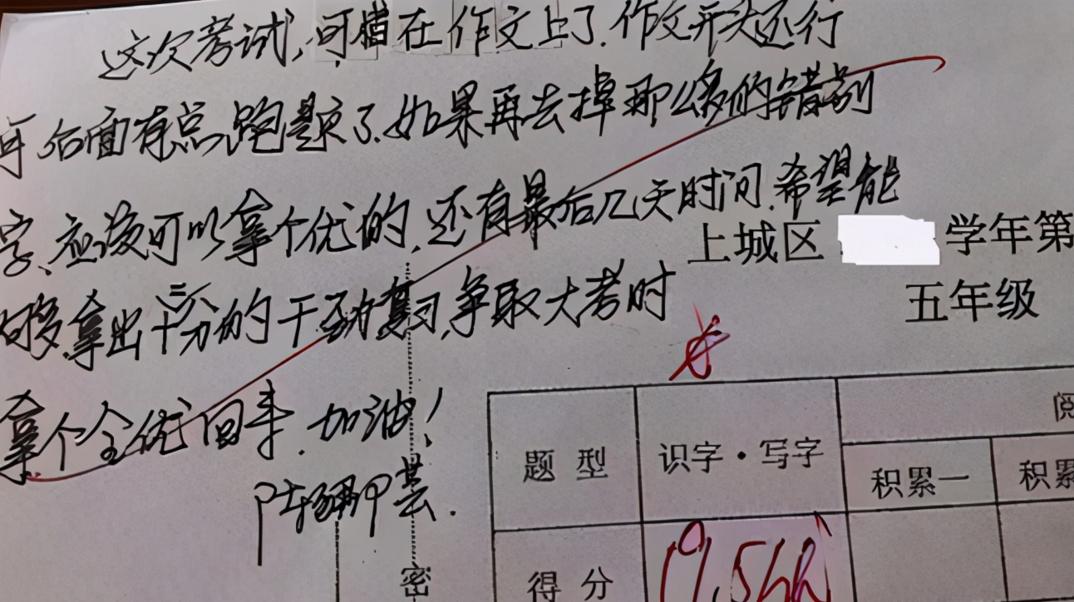 这次考试，可惜在作文上了。作文开头还行
后面有点跑题了。如果再去掉那么多的错别
字，应该可以拿个优的。还有最后几天时间，希望能
够拿出十二分的干劲复习，争取大考时
拿个全优回来。加油！
上城区 学年第
五年级
题型 识字·写字 阅
积累一 积累
得分
密